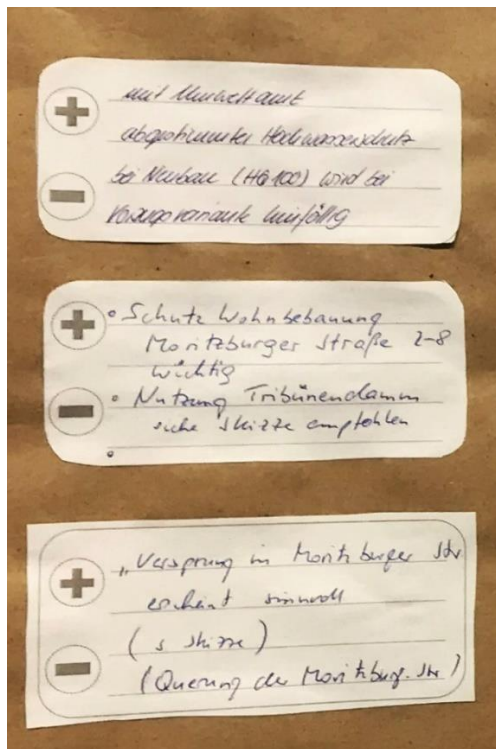 mit Umweltamt
abgestimmter Hochwasserschutz
bei Neubau (HQ100) wird bei
Vorzugsvariante hinfällig
• Schutz Wohnbebauung
Moritzburger Straße 2-8
wichtig
• Nutzung Tribünendamm
siehe Skizze empfohlen
•
„Versprung in Moritzburger Str
erscheint sinnvoll
(s Skizze)
(Querung der Moritzburg. Str)